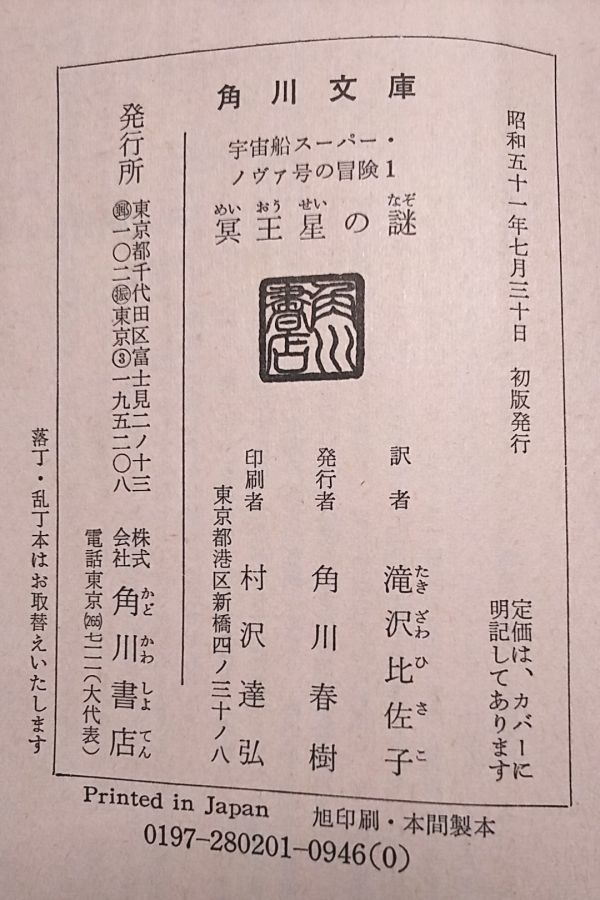 角川文庫
宇宙船スーパー・
ノヴァ号の冒険1
冥王星の謎
めい おう せい なぞ
角川書店
昭和五十一年七月三十日 初版発行
定価は、カバーに
明記してあります
訳者 滝沢比佐子
たき ざわ ひ さ こ
発行者 角川春樹
印刷者 村沢達弘
東京都港区新橋四ノ三十ノ八
発行所
東京都千代田区富士見二ノ十三
㊩一〇二㊩東京③一九五二〇八
株式
会社 角川書店
かど かわ しよ てん
電話東京(265)七一一一(大代表)
落丁・乱丁本はお取替えいたします
Printed in Japan 旭印刷・本間製本
0197-280201-0946(0)